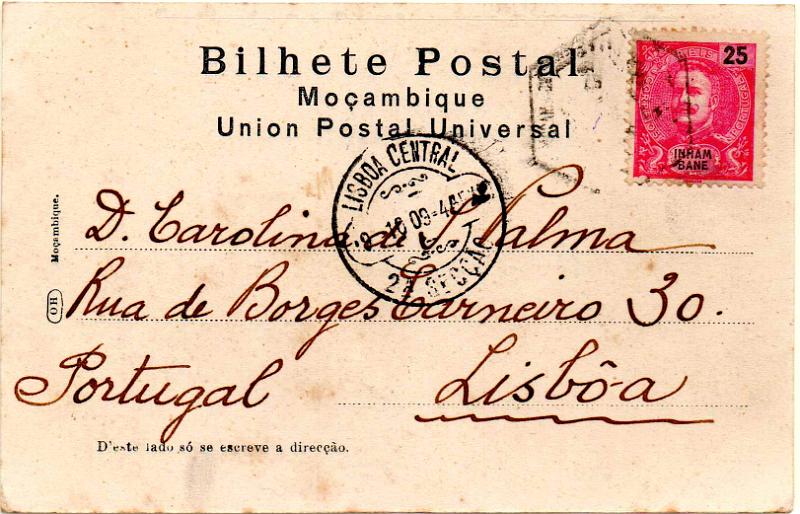 Bilhete Postal
Moçambique
Union Postal Universal
25
INHAM
BANE
LISBOA CENTRAL
2ª SECÇÃO
Moçambique.
OH
D. Carolina de S. Palma
Rua de Borges Carneiro 30.
Portugal Lisbôa
D'este lado só se escreve a direcção.